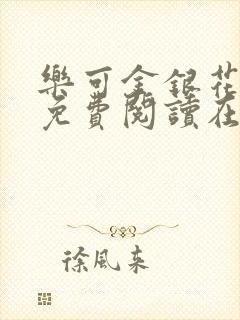 樂可金銀花
免費閱讀在
徐風來